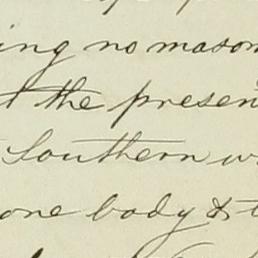 ing no mason
t the presen
Southern w
one body & t